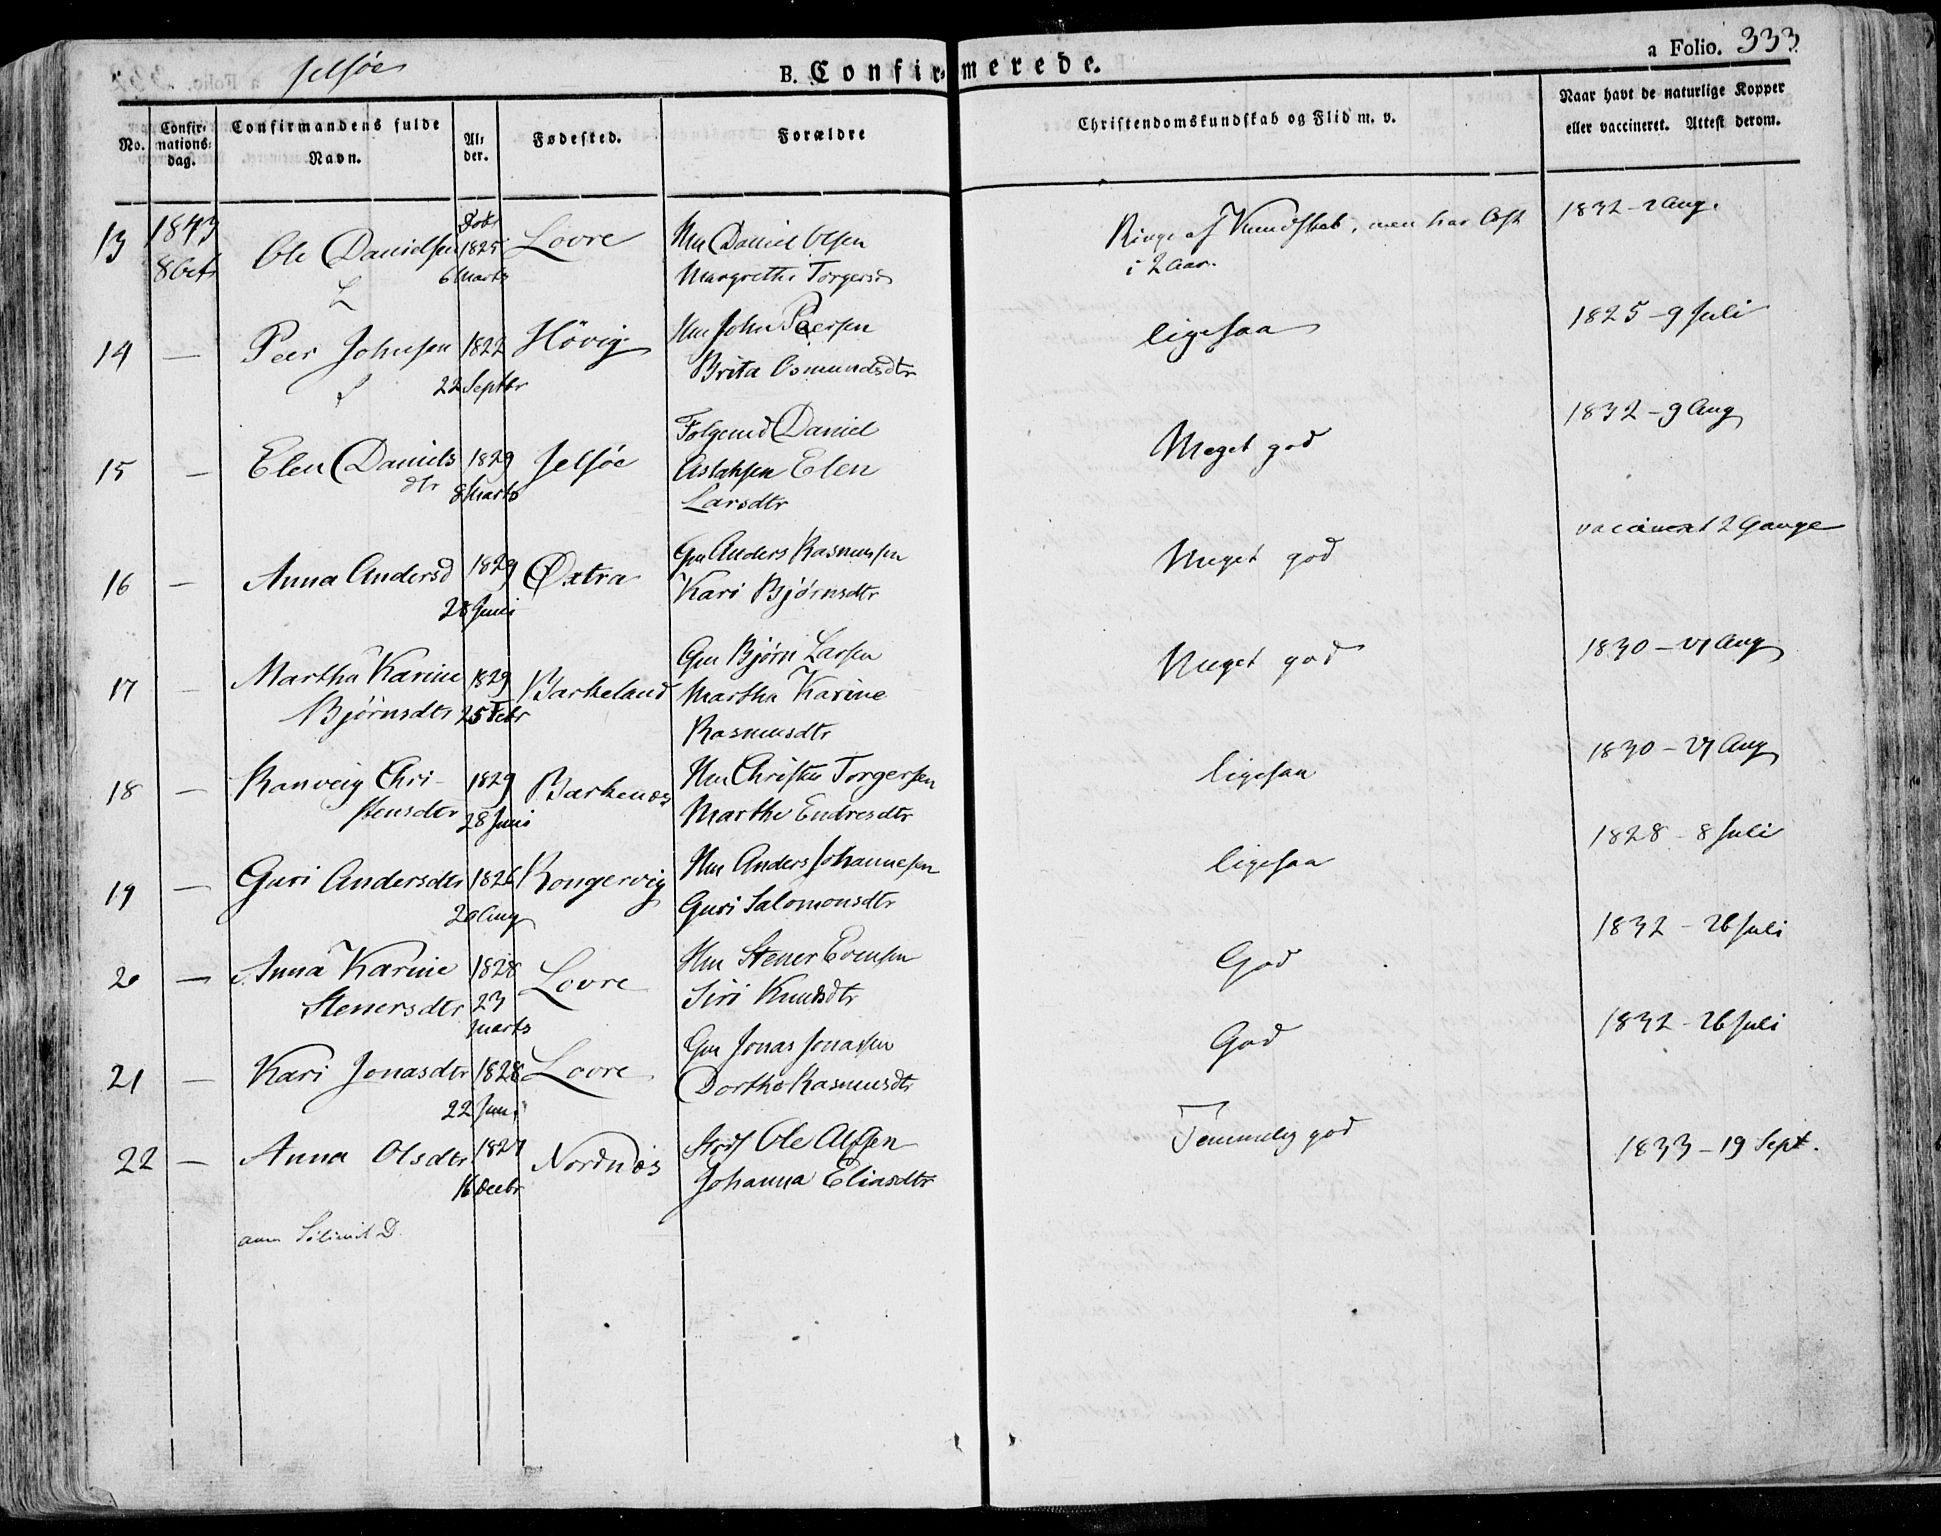 Jelsøe
B. Confirmerede.
a Folio. 333
No. Confirmationsdag. Confirmandens fulde Navn. Alder. Fødested. Forældre Christendomskundskab og Flid m. v. Naar havt de naturlige Kopper eller vaccineret. Attest derom.
13 1843 8 Oct Ole Danielsen 1825 6 Marts Lovre Hm Daniel Olsen Margrethe Torgersd Ringe af Kundskab, men har læst i 2 Aar. 1832 - 2 Aug.
14 — Peer Johnsen 1822 22 Septbr Høvig Hm John Peersen Brita Osmundsdtr ligesaa 1825 - 9 Juli
15 — Elen Daniels dtr 1829 8 Marts Jelsøe Folgemd Daniel Aslaksen Elen Larsdtr Meget god 1832 - 9 Aug
16 — Anna Andersd 1829 28 Juni Øxtra Gm Anders Rasmussen Kari Bjørnsdtr Meget god vaccineret 2 Gange
17 — Martha Karine Bjørnsdtr 1829 25 Febr Barkeland Gm Bjørn Larsen Martha Karine Rasmusdtr Meget god 1830 - 21 Aug
18 — Ranveig Chri-stensdtr 1829 28 Juni Barkenæs Hm Christen Torgersen Marthe Endresdtr ligesaa 1830 - 21 Aug
19 — Guri Andersdtr 1826 20 Aug Rongervig Hm Anders Johannesen Guri Salomonsdtr ligesaa 1828 - 8 Juli
20 — Anna Karine Stenersdtr 1828 23 Marts Lovre Hm Stener Evensen Siri Knudsdtr God 1832 - 26 Juli
21 — Kari Jonasdtr 1828 22 Juni Lovre Gm Jonas Jonassen Dorthe Rasmusdtr God 1832 - 26 Juli
22 — Anna Olsdtr 1827 16 Decbr Nordnæs Ole Johanna Eliasdtr Temmelig god 1833 - 19 Sept.